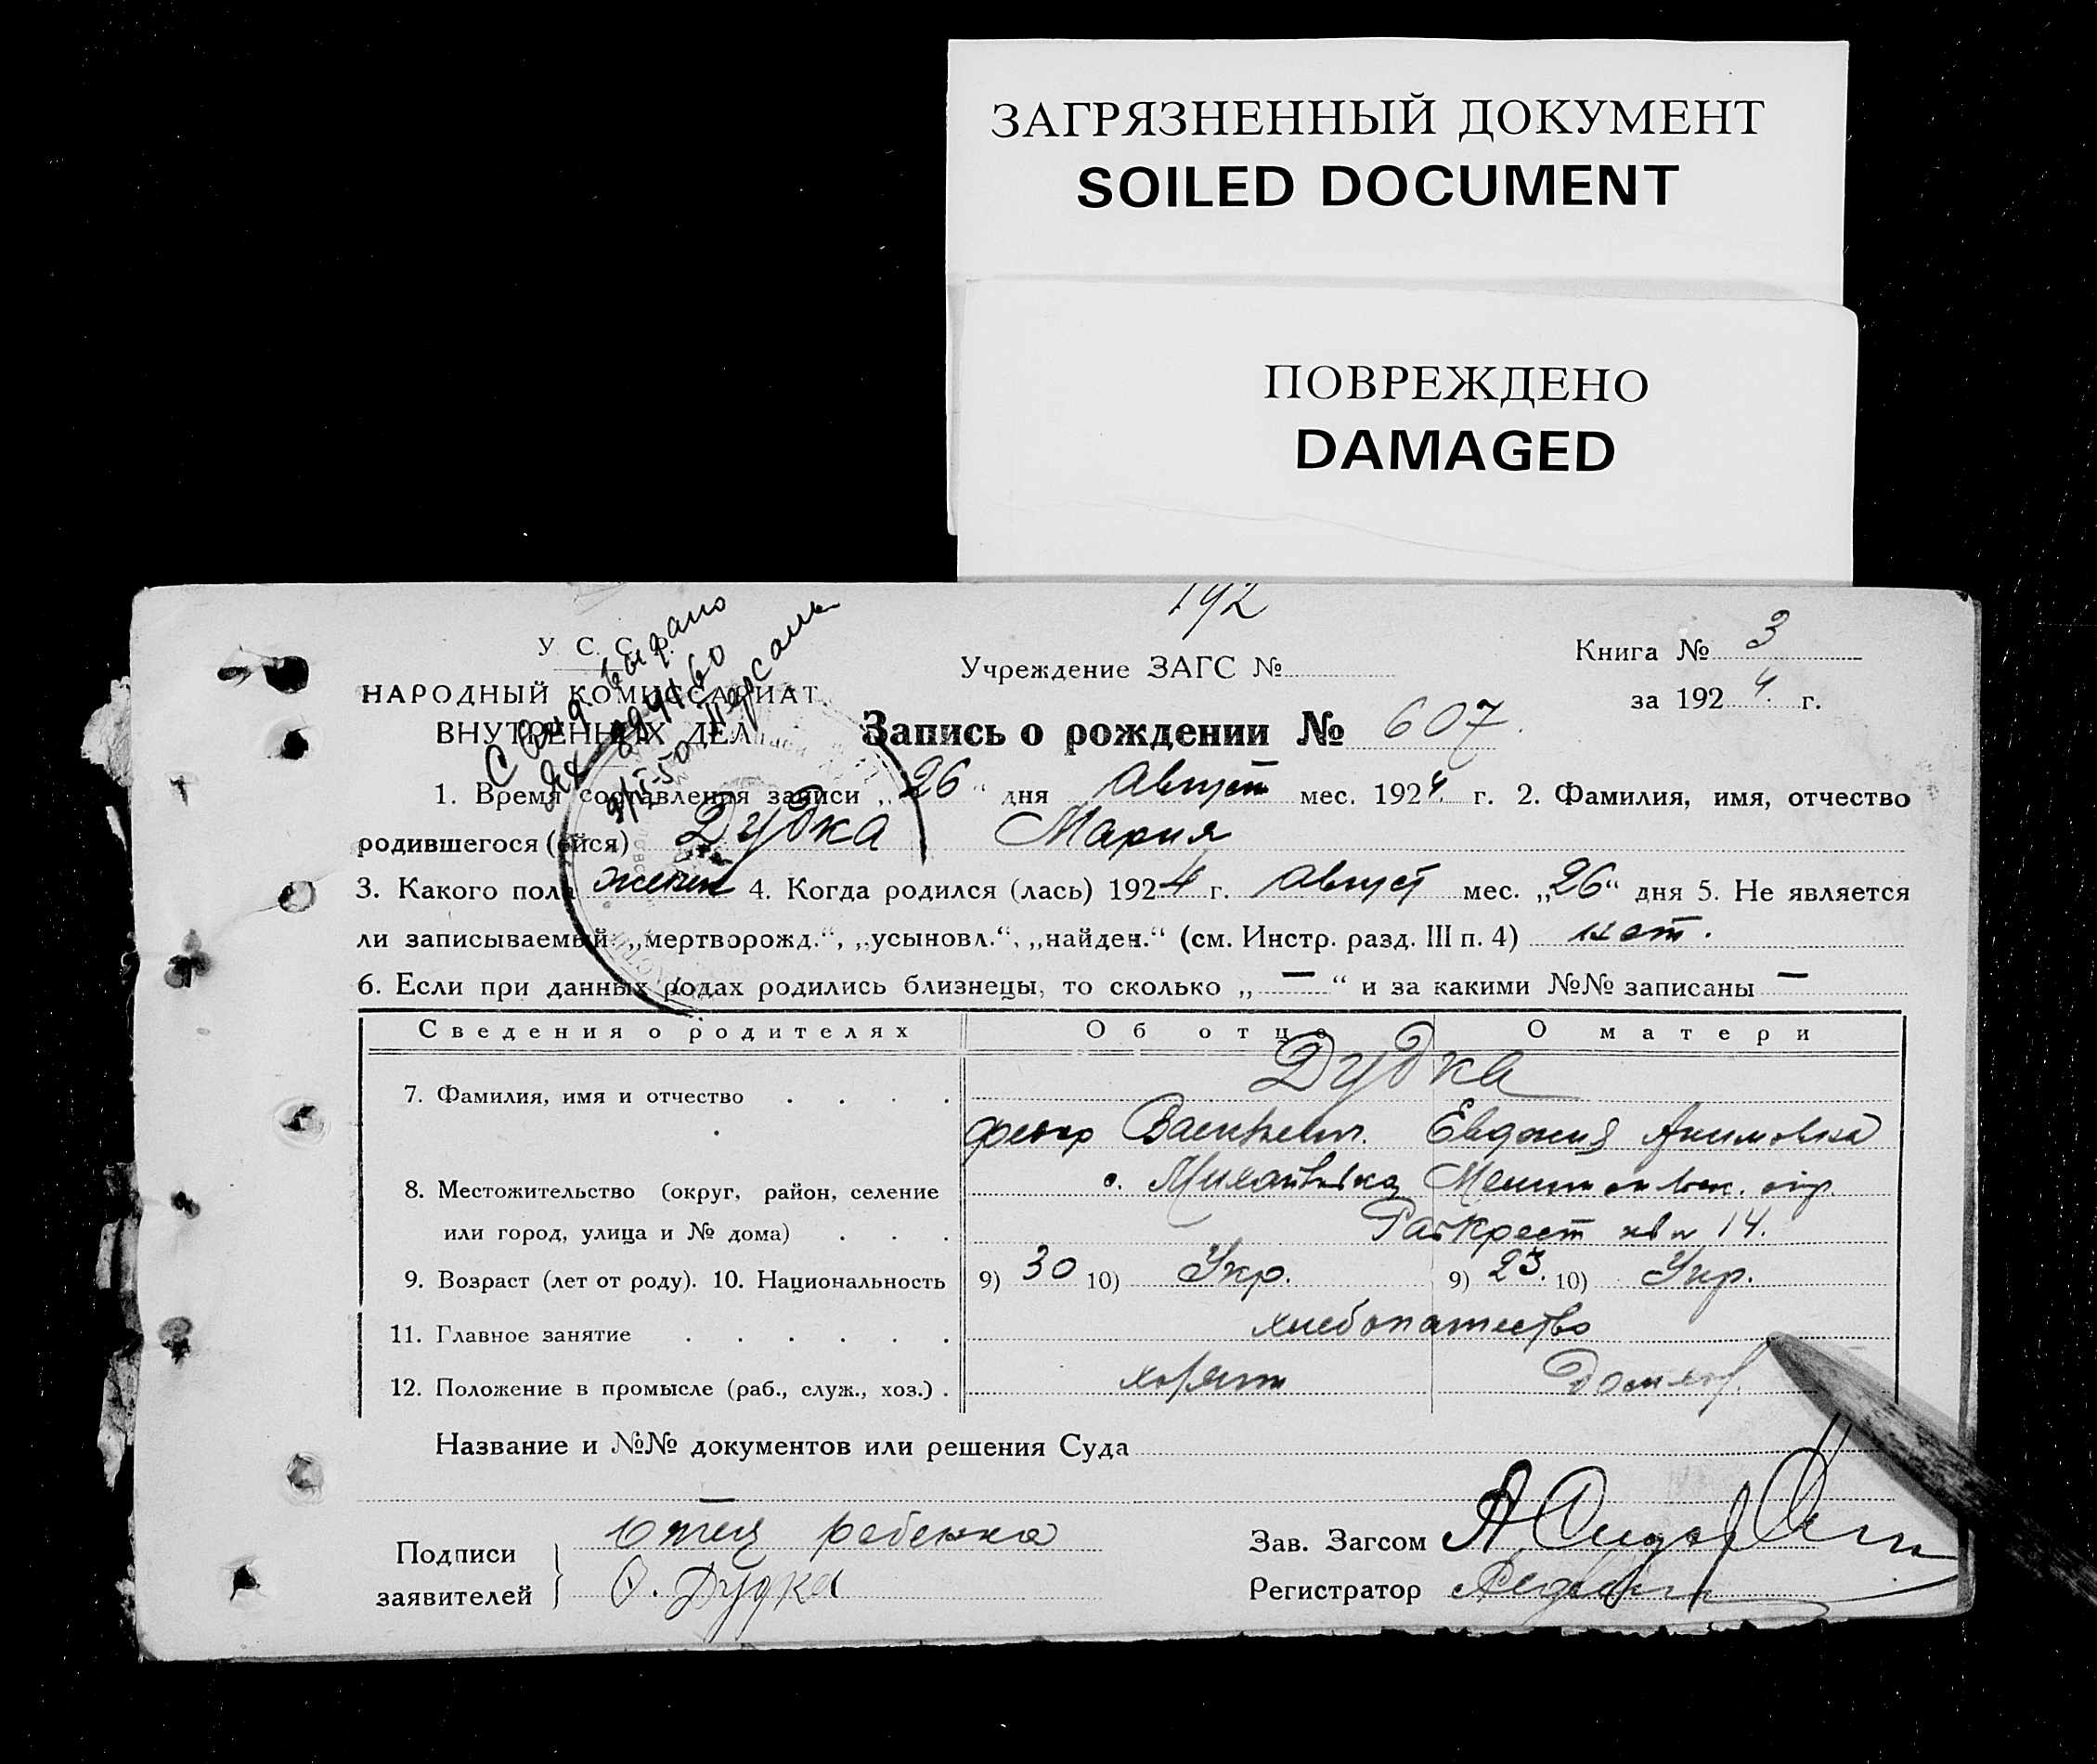 ЗАГРЯЗНЕННЫЙ ДОКУМЕНТ
SOILED DOCUMENT
ПОВРЕЖДЕНО
DAMAGED
192
У. С. С. Р.
НАРОДНЫЙ КОМИССАРИАТ
ВНУТРЕННИХ ДЕЛ
выдано
Учреждение ЗАГС №
Книга № 3
за 1924 г.
Запись о рождении № 607
1. Время составления записи „26“ дня Август мес. 1924 г. 2. Фамилия, имя, отчество
родившегося (ейся) Дудка Мария
3. Какого пола женск 4. Когда родился (лась) 1924 г. Август мес. „26“ дня 5. Не является
ли записываемый: „мертворожд.“, „усыновл.“, „найден.“ (см. Инстр. разд. III п. 4) нет.
6. Если при данных родах родились близнецы, то сколько „—“ и за какими №№ записаны —
Сведения о родителях Об отце О матери
Дудка
7. Фамилия, имя и отчество
Васильевич. Евдокия Акимовна
8. Местожительство (округ, район, селение с. Михайловка
или город, улица и № дома) 14.
9. Возраст (лет от роду). 10. Национальность 9) 30 10) Укр. 9) 23. 10) Укр.
11. Главное занятие хлебопашество
12. Положение в промысле (раб., служ., хоз.)
Название и №№ документов или решения Суда
—
Подписи заявителей Отец ребенка
Дудка
Зав. Загсом
Регистратор